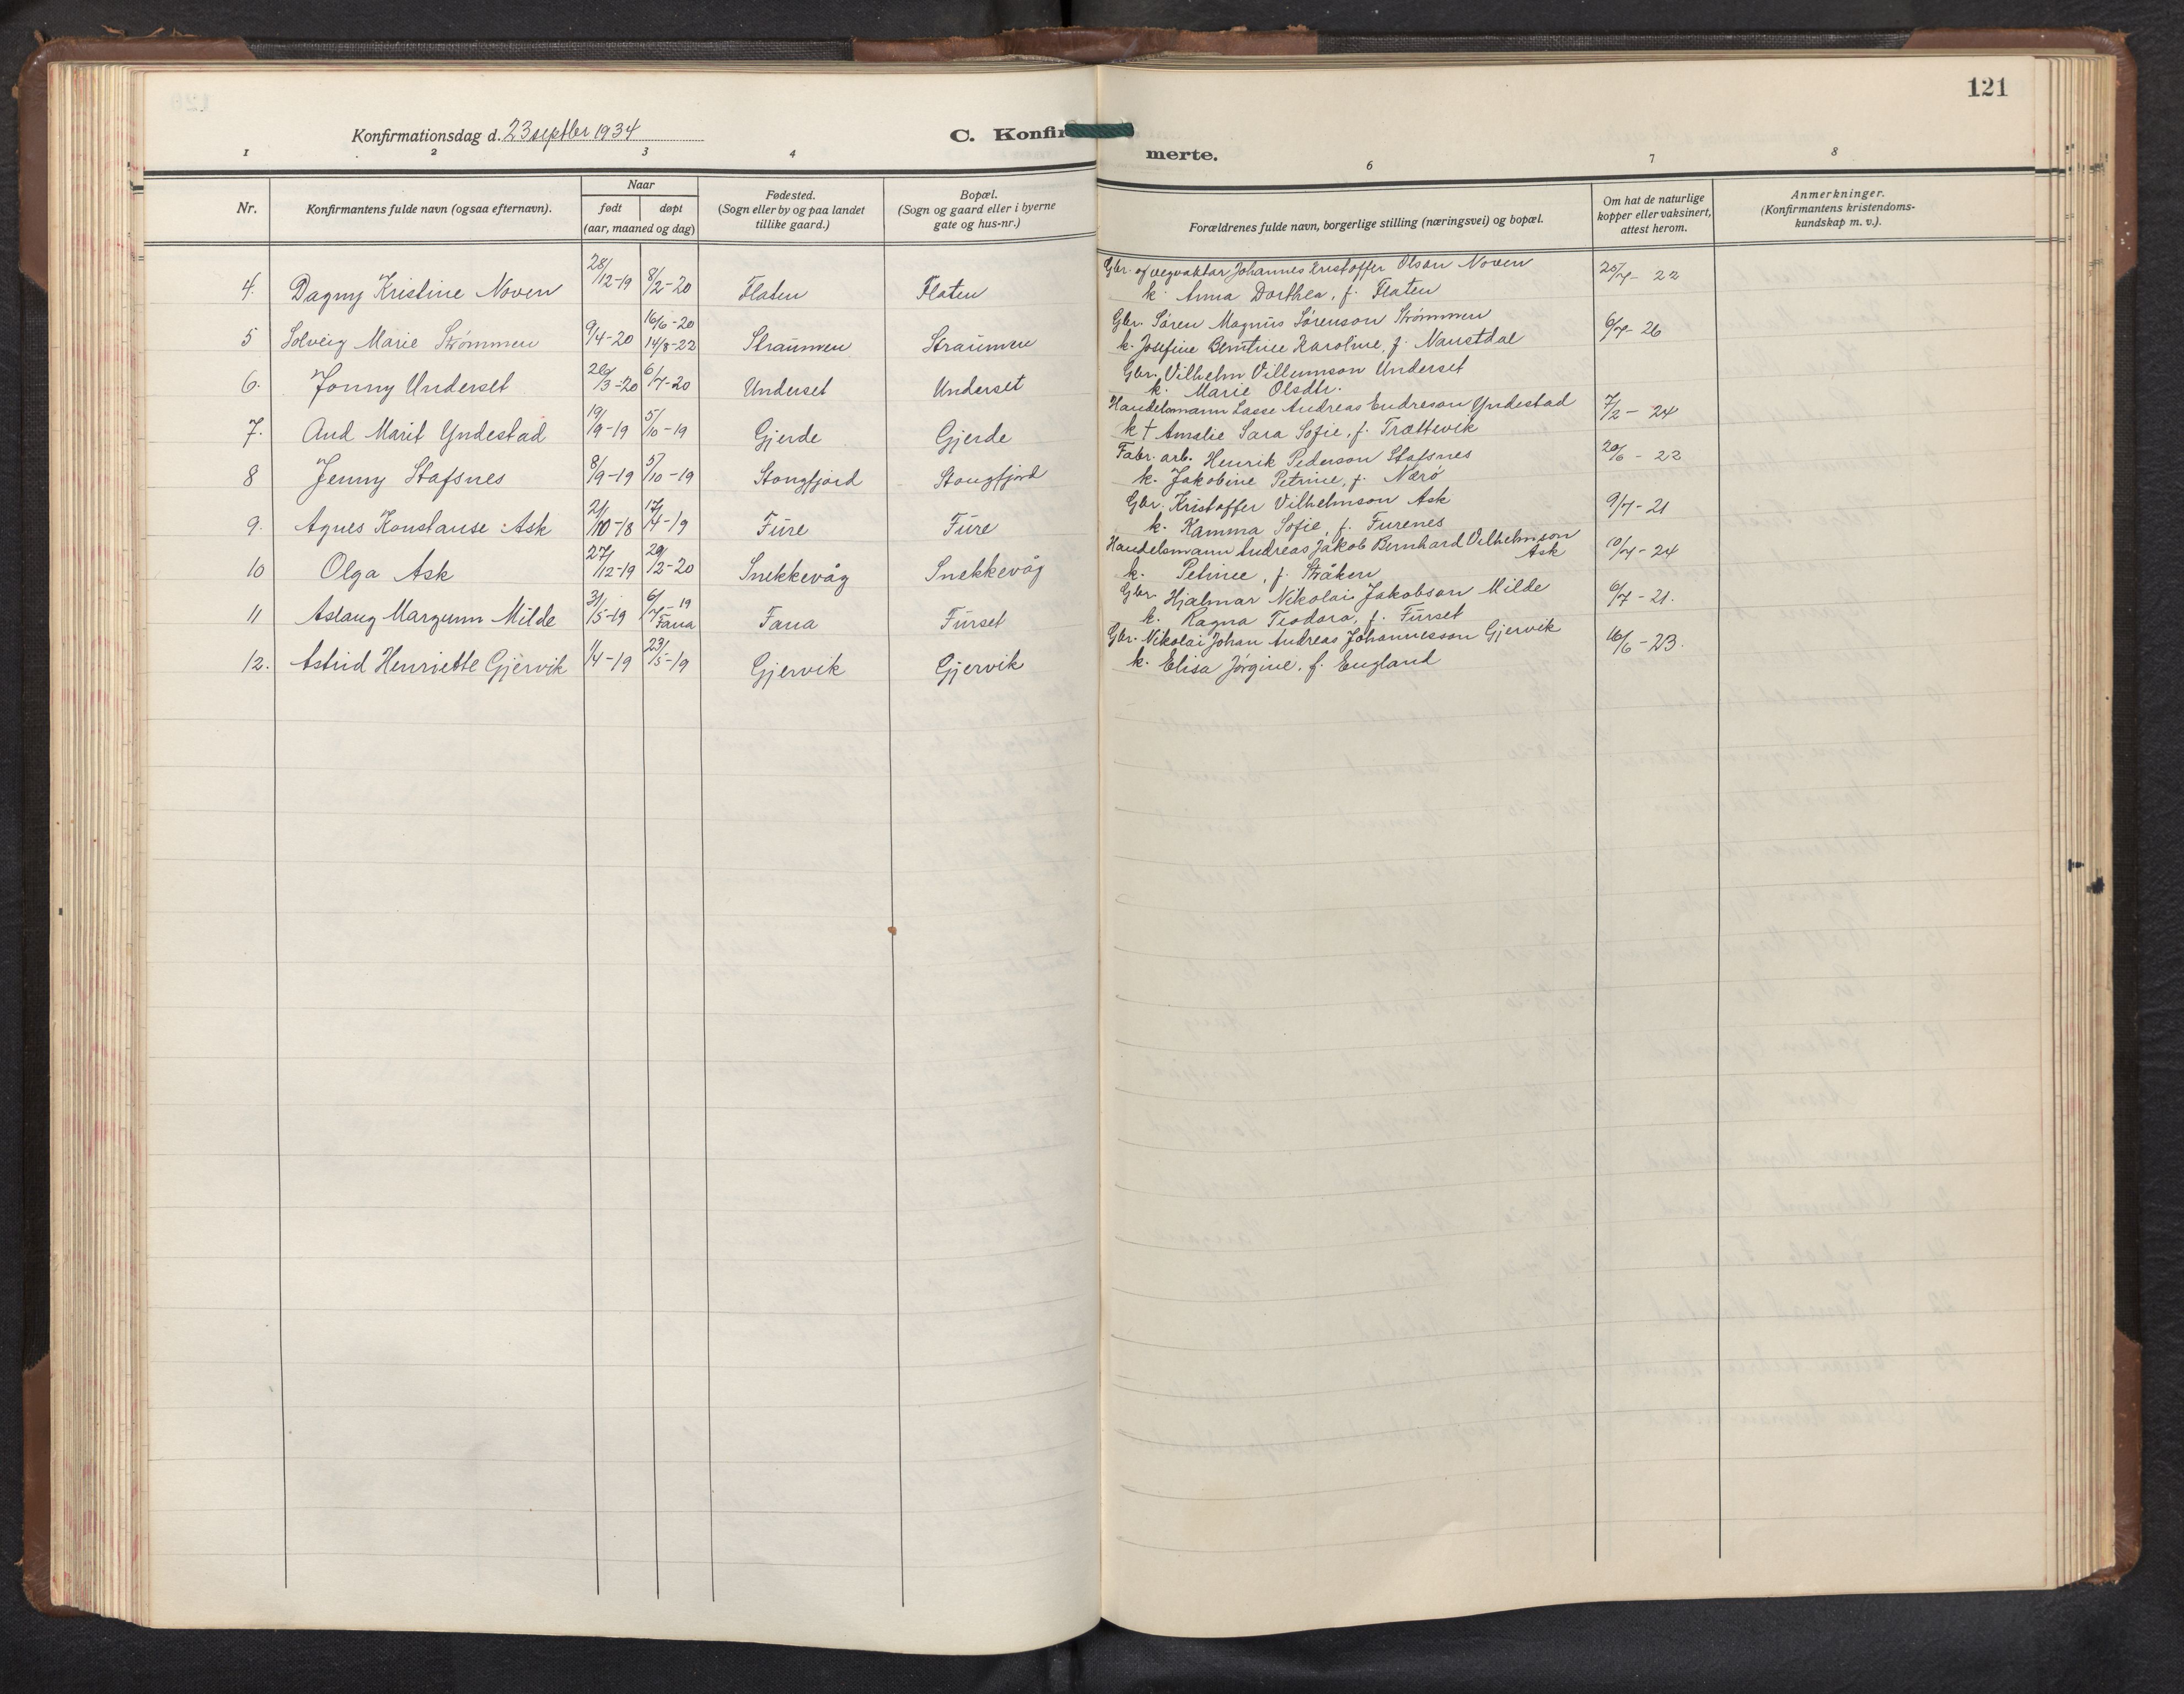 121
Konfirmationsdag d. 23 septber 1934
C. Konfir
merte.
1 2 3 4 6 7 8
Nr.
Konfirmantens fulde navn (ogsaa efternavn).
Naar
født døpt
(aar, maaned og dag)
Fødested.
(Sogn eller by og paa landet
tillike gaard.)
Bopæl.
(Sogn og gaard eller i byerne
gate og hus-nr.)
Forældrenes fulde navn, borgerlige stilling (næringsvei) og bopæl.
Om hat de naturlige
kopper eller vaksinert,
attest herom.
Anmerkninger.
(Konfirmantens kristendoms-
kundskap m. v.).
4. Dagny Kristine Noven 28/12-19 8/2-20 Flaten Flaten Gbr. og vegvaktar Johannes Kristoffer Olson Noven 25/7-22
k. Anna Dorthea, f. Flaten
5 Solveig Marie Strømmen 9/4-20 16/6-20 14/8-22 Straumen Straumen Gbr. Søren Magnus Sørenson Strømmen 6/7-26
k. Josefine Karoline, f. Naustdal
6. Jonny Underset 26/3-20 6/7-20 Underset Underset Gbr. Vilhelm Villumson Underset
k. Marie Olsdtr.
7. Aud Marit Yndestad 19/9-19 5/10-19 Gjerde Gjerde Handelsmann Lasse Andreas Endreson Yndestad 7/2-24
k † Amalie Sara Sofie, f. Trættevik
8 Jenny Stafsnes 8/9-19 5/10-19 Stongfjord Stongfjord Fabr. arb. Henrik Pederson Stafsnes 20/6-22
k. Jakobine Petrine, f. Nærø
9. Agnes Konstanse Ask 21/10-18 17/4-19 Fure Fure Gbr. Kristoffer Vilhelmson Ask 9/7-21
k. Kamma Sofie, f. Furenes
10 Olga Ask 27/12-19 29/2-20 Snekkevåg Snekkevåg Handelsmann Andreas Jakob Bernhard Vilhelmson 10/7-24
Ask
k. Petrine, f. Stråken
11 Aslaug Margunn Milde 31/5-19 6/7-19 Fana Fana Furset Gbr. Hjalmar Nikolai Jakobson Milde 6/7-21.
k. Ragna Teodora, f. Furset
12. Astrid Henriette Gjervik 1/4-19 23/5-19 Gjervik Gjervik Gbr. Nikolai Johan Andreas Johannesson Gjervik 16/6-23.
k. Elisa Jørgine, f. England